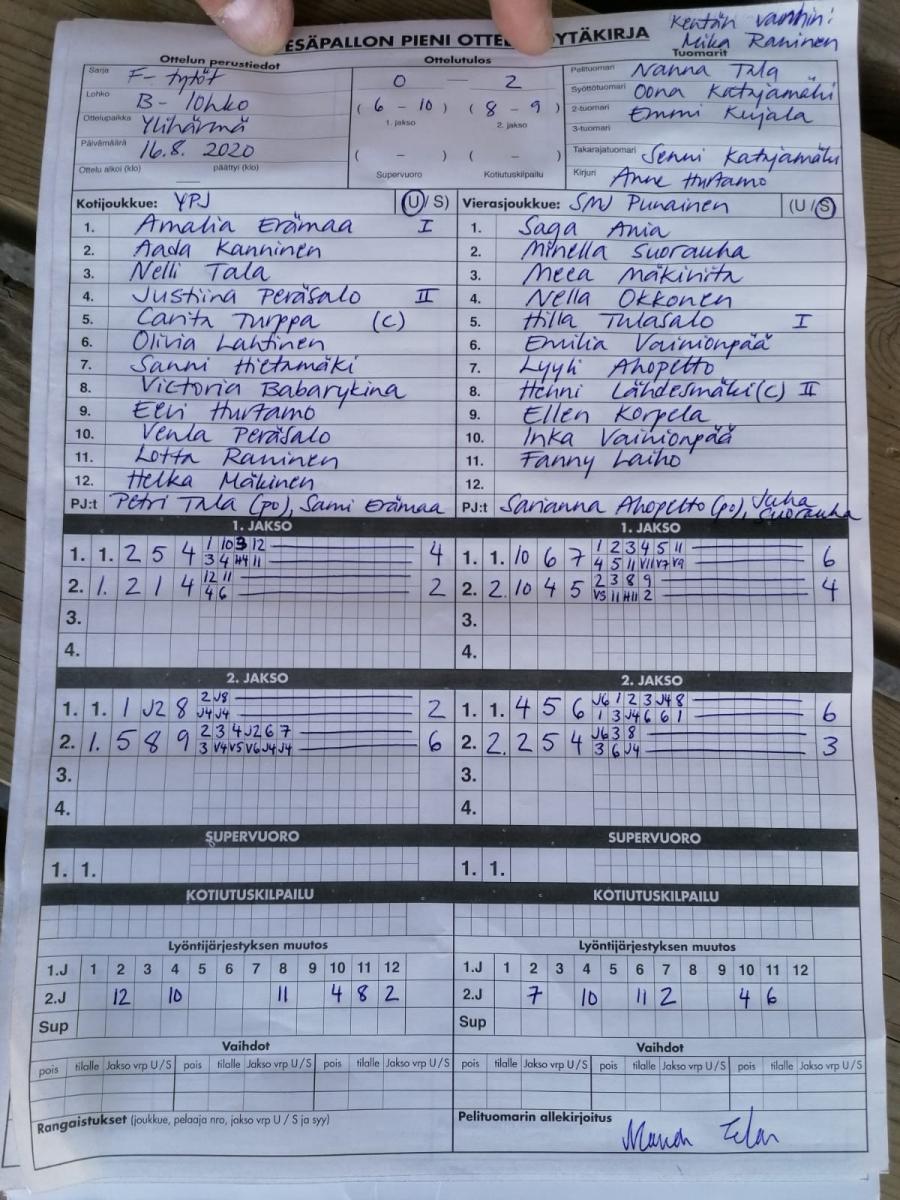 Kentän vanhin:
Mika Raninen
ESÄPALLON PIENI OTTEL YTÄKIRJA
Ottelun perustiedot
Sarja F-tytöt
Lohko B-lohko
Ottelupaikka Ylihärmä
Päivämäärä 16.8. 2020
Ottelu alkoi (klo) päättyi (klo)
Ottelutulos
0 – 2
( 6 – 10 ) ( 8 – 9 )
1. jakso 2. jakso
( – ) ( – )
Supervuoro Kotiutuskilpailu
Tuomarit
Pelituomari Nanna Tala
Syöttötuomari Oona Katajamäki
2-tuomari Emmi Kujala
3-tuomari
Takarajatuomari Senni Katajamäki
Kirjuri Anne Hurtamo
Kotijoukkue: YPJ (U/S)
1. Amalia Erämaa I
2. Aada Kanninen
3. Nelli Tala
4. Justiina Peräsalo II
5. Carita Turppa (C)
6. Olivia Lahtinen
7. Sanni Hietamäki
8. Victoria Babarykina
9. Eevi Hurtamo
10. Venla Peräsalo
11. Lotta Raninen
12. Helka Mäkinen
PJ:t Petri Tala (po), Sami Erämaa
Vierasjoukkue: SMJ Punainen (U/S)
1. Saga Ania
2. Minella Suorauha
3. Meea Mäkinita
4. Nella Okkonen
5. Hilla Tulasalo I
6. Emilia Vainionpää
7. Lyyli Ahopelto
8. Henni Lähdesmäki (C) II
9. Ellen Korpela
10. Inka Vainionpää
11. Fanny Laiho
12.
PJ:t Sarianna Ahopelto (po), Juha Suorauha
1. JAKSO
1. 1. 2 5 4 1 10 3 12 4
3 4 H4 11
2. 1. 2 1 4 12 11 2
4 6
3.
4.
1. JAKSO
1. 1. 10 6 7 1 2 3 4 5 11 6
4 5 11 V11 V7 V9
2. 2. 10 4 5 2 3 8 9 4
V3 11 H11 2
3.
4.
2. JAKSO
1. 1. 1 J2 8 2 J8 2
J4 J4
2. 1. 5 8 9 2 3 4 J2 6 7 6
3 V4 V5 V6 J4 J4
3.
4.
2. JAKSO
1. 1. 4 5 6 J6 1 2 3 J4 8 6
1 3 J4 6 6 1
2. 2. 2 5 4 J6 3 8 3
3 6 J4
3.
4.
SUPERVUORO
1. 1.
SUPERVUORO
1. 1.
KOTIUTUSKILPAILU
KOTIUTUSKILPAILU
Lyöntijärjestyksen muutos
1.J 1 2 3 4 5 6 7 8 9 10 11 12
2.J 12 10 11 4 8 2
Sup
Lyöntijärjestyksen muutos
1.J 1 2 3 4 5 6 7 8 9 10 11 12
2.J 7 10 11 2 4 6
Sup
Vaihdot
pois tilalle Jakso vrp U/S pois tilalle Jakso vrp U/S pois tilalle Jakso vrp U/S
Vaihdot
pois tilalle Jakso vrp U/S pois tilalle Jakso vrp U/S pois tilalle Jakso vrp U/S
Rangaistukset (joukkue, pelaaja nro, jakso vrp U / S ja syy)
Pelituomarin allekirjoitus